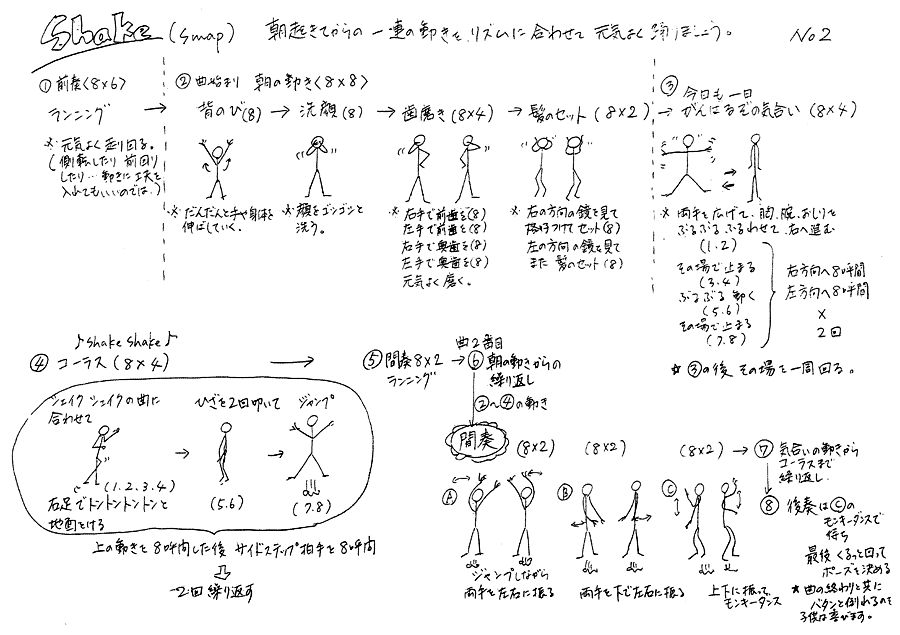 Shake (Smap) 朝起きてからの一連の動きを、リズムに合わせて元気よく踊りましょう。 No2
① 前奏<8×6>
ランニング →
※ 元気よく走り回る。
(側転したり 前回り
したり… 動きに工夫を
入れてもいいのでは。)
② 曲始まり 朝の動き<8×8>
背のび(8) → 洗顔(8) → 歯磨き(8×4) → 髪のセット(8×2) →
※ だんだんと手や身体を
伸ばしていく。
※ 顔をゴシゴシと
洗う。
※ 右手で前歯を(8)
左手で前歯を(8)
右手で奥歯を(8)
左手で奥歯を(8)
元気よく磨く。
※ 右の方向の鏡を見て
格好つけてセット(8)
左の方向の鏡を見て
また髪のセット(8)
③ 今日も一日
がんばるぞの気合い(8×4)
※ 両手を広げて、胸、腕、おしりを
ぶるぶるふるわせて右へ進む
(1.2)
その場で止まる
(3.4)
ぶるぶる動く
(5.6)
その場で止まる
(7.8)
右方向へ8呼間
左方向へ8呼間
×
2回
☆ ③の後 その場を一周回る。
♪shake shake♪
④ コーラス(8×4) →
シェイク シェイクの曲に
合わせて
(1.2.3.4)
右足でトントントントンと
地面をける
→
ひざを2回叩いて
(5.6)
→
ジャンプ
(7.8)
上の動きを8呼間した後 サイドステップ拍手を8呼間
2回繰り返す
⑤ 間奏8×2
ランニング
→
曲2番目
⑥ 朝の動きからの
繰り返し
②〜④の動き
間奏
(8×2) (8×2) (8×2) →
Ⓐ
ジャンプしながら
両手を左右に振る
Ⓑ
両手を下で左右に振る
Ⓒ
上下に振って
モンキーダンス
⑦ 気合いの動きから
コーラスまで
繰り返し
⑧ 後奏はⒸの
モンキーダンスで
待ち
最後 くるっと回って
ポーズを決める
★曲の終わりと共に
バタンと倒れるのも
子供は喜びます。